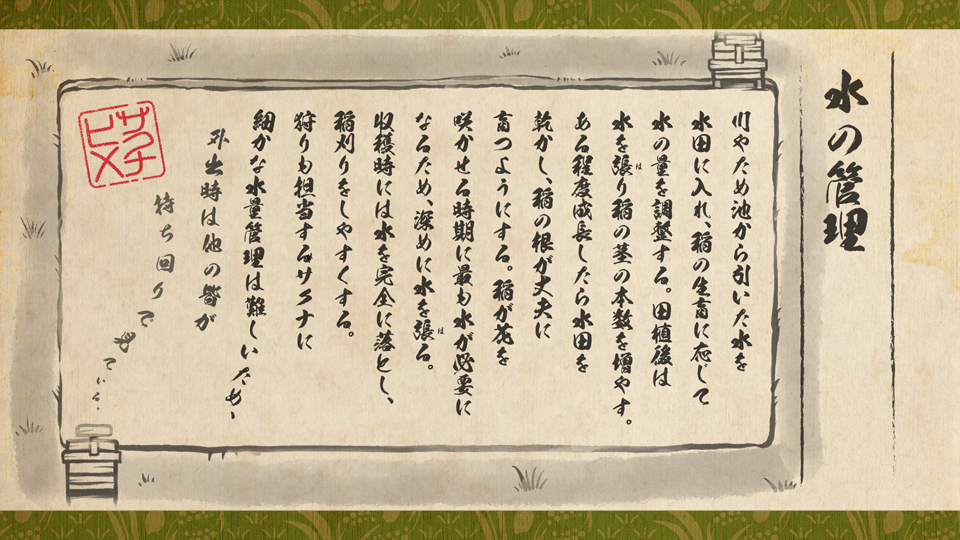 水の管理
川やため池から引いた水を
水田に入れ、稲の生育に応じて
水の量を調整する。田植後は
水を張り稲の茎の本数を増やす。
は
ある程度成長したら水田を
乾かし、稲の根が丈夫に
育つようにする。稲が花を
咲かせる時期に最も水が必要に
なるため、深めに水を張る。
は
収穫時には水を完全に落とし、
稲刈りをしやすくする。
狩りも担当するサクナに
細かな水量管理は難しいため、
外出時は他の皆が
持ち回りで見ていく。
サクナ
ヒメ